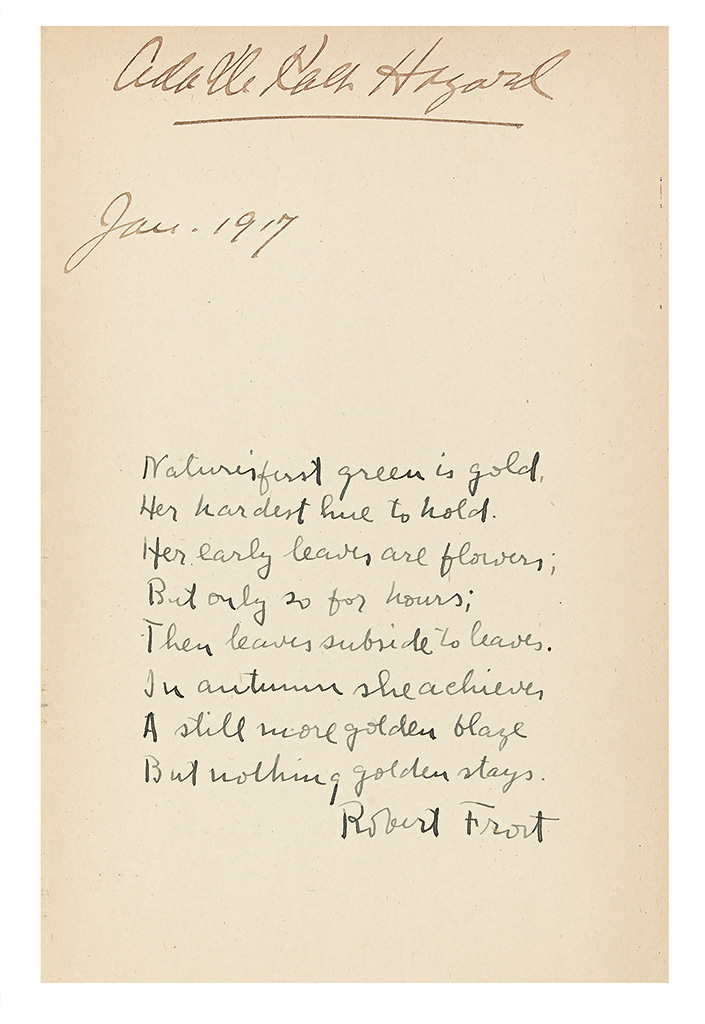 Hazard
Jan. 1917
Nature's first green is gold,
Her hardest hue to hold.
Her early leaves are flowers;
But only so for hours;
Then leaves subside to leaves.
In autumn she achieves
A still more golden blaze
But nothing golden stays.
Robert Frost